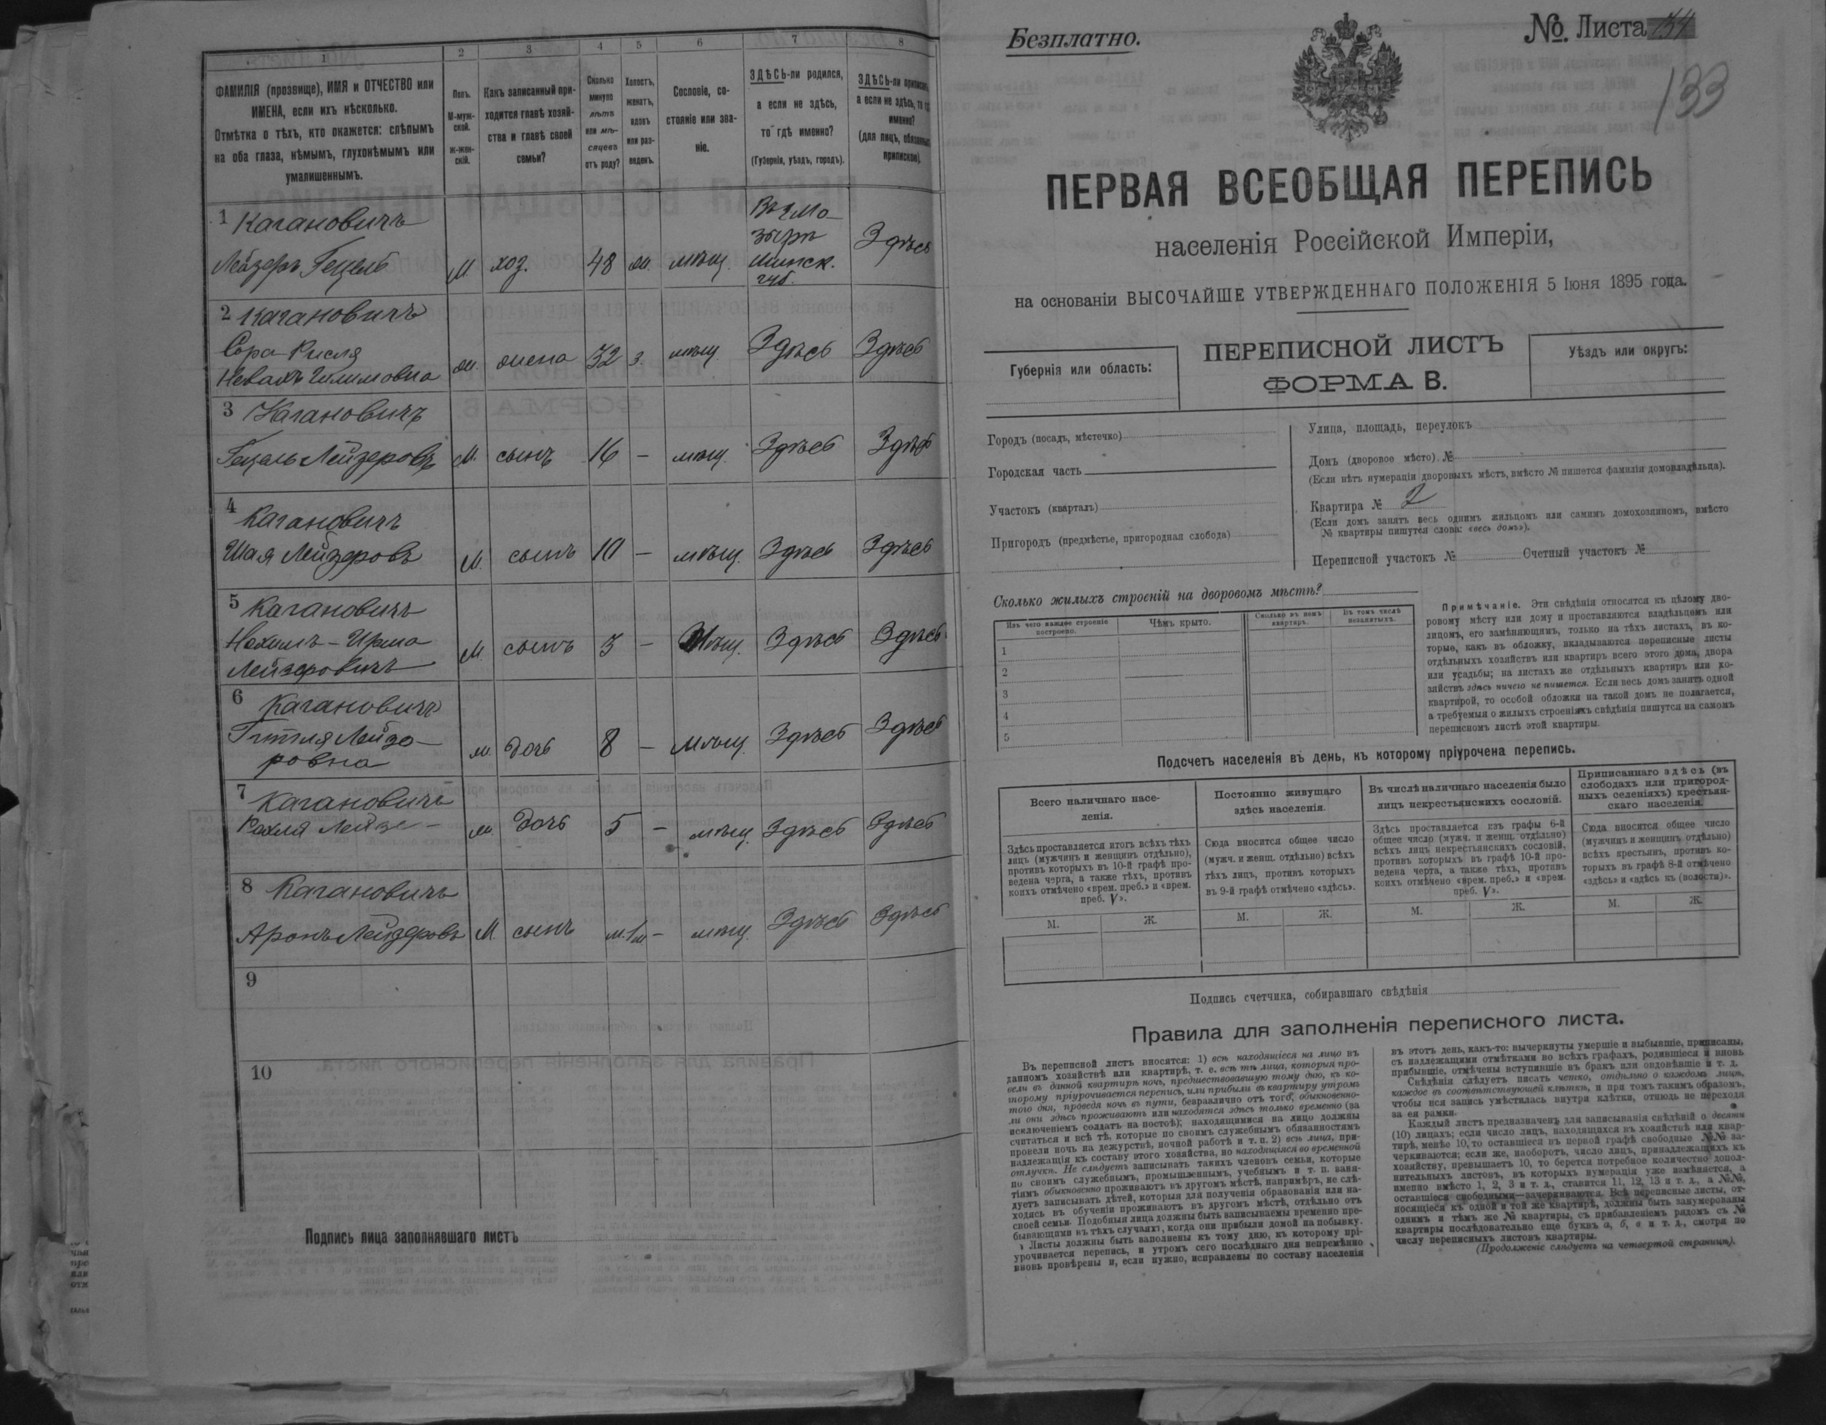 1
2
3
4
5
6
7
8
ФАМИЛІЯ (прозвище), ИМЯ и ОТЧЕСТВО или
ИМЕНА, если ихъ нѣсколько.
Отмѣтка о тѣхъ, кто окажется: слѣпымъ
на оба глаза, нѣмымъ, глухонѣмымъ или
умалишеннымъ.
Полъ.
М-муж-
ской.
ж-жен-
скій.
Какъ записанный при-
ходится главѣ хозяй-
ства и главѣ своей
семьи?
Сколько
минуло
лѣтъ
или мѣ-
сяцевъ
отъ роду?
Холостъ,
женатъ,
вдовъ
или раз-
веденъ.
Сословіе, со-
стояніе или зва-
ніе.
ЗДѢСЬ-ли родился,
а если не здѣсь,
то гдѣ именно?
(Губернія, уѣздъ, городъ).
ЗДѢСЬ-ли
а если не здѣсь, то
именно?
(для лицъ,
1 Кагановичъ
Лейзеръ Гецель М хоз. 48 мѣщ.
Минск.
губ.
Здѣсь
2 Кагановичъ
Сора-
жена 32 мѣщ. Здѣсь Здѣсь
3 Кагановичъ
Гецель Лейзеровъ М. сынъ 16 – мѣщ. Здѣсь Здѣсь
4
Кагановичъ
Шая Лейзеровъ М. сынъ 10 – мѣщ. Здѣсь Здѣсь
5 Кагановичъ
Лейзеровичъ М сынъ 3 – мѣщ. Здѣсь Здѣсь
6
Кагановичъ
Лейзе-
ровна дочь 8 – мѣщ. Здѣсь Здѣсь
7
Кагановичъ
Лейзе- дочь 5 – мѣщ. Здѣсь Здѣсь
8 Кагановичъ
Аронъ Лейзеровъ М сынъ – мѣщ. Здѣсь Здѣсь
9
10
Подпись лица заполнявшаго листъ
Безплатно.
№. Листа
133
ПЕРВАЯ ВСЕОБЩАЯ ПЕРЕПИСЬ
населенія Россійской Имперіи,
на основаніи ВЫСОЧАЙШЕ УТВЕРЖДЕННАГО ПОЛОЖЕНІЯ 5 Іюня 1895 года.
Губернія или область:
ПЕРЕПИСНОЙ ЛИСТЪ
ФОРМА В.
Уѣздъ или округъ:
Городъ (посадъ, мѣстечко)
Городская часть
Участокъ (кварталъ)
Пригородъ (предмѣстье, пригородная слобода)
Улица, площадь, переулокъ
Домъ (дворовое мѣсто). №
(Если нѣтъ нумераціи дворовыхъ мѣстъ, вмѣсто № пишется фамилія домовладѣльца).
Квартира № 2
(Если домъ занятъ весь однимъ жильцомъ или самимъ домохозяиномъ, вмѣсто
№ квартиры пишутся слова: «весь домъ»).
Переписной участокъ № Счетный участокъ №
Сколько жилыхъ строеній на дворовомъ мѣстѣ?
Изъ чего каждое строеніе
построено.
Чѣмъ крыто.
Сколько въ немъ
квартиръ.
Въ томъ числѣ
незанятыхъ.
1
2
3
4
5
Примѣчаніе. Эти свѣдѣнія относятся къ цѣлому дво-
ровому мѣсту или дому и проставляются владѣльцемъ или
лицомъ, его замѣняющимъ, только на тѣхъ листахъ, въ ко-
торые, какъ въ обложку, вкладываются переписные листы
отдѣльныхъ хозяйствъ или квартиръ всего этого дома, двора
или усадьбы; на листахъ же отдѣльныхъ квартиръ или хо-
зяйствъ здѣсь ничего не пишется. Если весь домъ занятъ одной
квартирой, то особой обложки на такой домъ не полагается,
а требуемыя о жилыхъ строеніяхъ свѣдѣнія пишутся на самомъ
переписномъ листѣ этой квартиры.
Подсчетъ населенія въ день, къ которому пріурочена перепись.
Всего наличнаго насе-
ленія.
Здѣсь проставляется итогъ всѣхъ тѣхъ
лицъ (мужчинъ и женщинъ отдѣльно),
противъ которыхъ въ 10-й графѣ про-
ведена черта, а также тѣхъ, противъ
коихъ отмѣчено «врем. преб.» и «врем.
преб. V».
Постоянно живущаго
здѣсь населенія.
Сюда вносится общее число
(мужч. и женщ. отдѣльно) всѣхъ
тѣхъ лицъ, противъ которыхъ
въ 9-й графѣ отмѣчено «здѣсь».
Въ числѣ наличнаго населенія было
лицъ некрестьянскихъ сословій.
Здѣсь проставляется изъ графы 6-й
общее число (мужч. и женщ. отдѣльно)
всѣхъ лицъ некрестьянскихъ сословій,
противъ которыхъ въ графѣ 10-й про-
ведена черта, а также тѣхъ, противъ
коихъ отмѣчено «врем. преб.» и «врем.
преб. V».
Приписаннаго здѣсь (въ
слободахъ или пригород-
ныхъ селеніяхъ) крестьян-
скаго населенія.
Сюда вносится общее число
(мужчинъ и женщинъ отдѣльно)
всѣхъ крестьянъ, противъ ко-
торыхъ въ графѣ 8-й отмѣчено
«здѣсь» и «здѣсь къ (волости)».
М. Ж. М. Ж. М. Ж. М. Ж.
Подпись счетчика, собиравшаго свѣдѣнія
Правила для заполненія переписного листа.
Въ переписной листъ вносятся: 1) всѣ находящіеся на лицо въ
данномъ хозяйствѣ или квартирѣ, т. е. всѣ тѣ лица, которыя про-
вели въ данной квартирѣ ночь, предшествовавшую тому дню, къ ко-
торому пріурочивается перепись, или прибыли въ квартиру утромъ
того дня, проведя ночь въ пути, безразлично отъ того, обыкновенно-
ли они здѣсь проживаютъ или находятся здѣсь только временно (за
исключеніемъ солдатъ на постоѣ); находящимися на лицо должны
считаться и всѣ тѣ, которые по своимъ служебнымъ обязанностямъ
провели ночь на дежурствѣ, ночной работѣ и т. п. 2) всѣ лица, при-
надлежащія къ составу этого хозяйства, но находящіяся во временной
отлучкѣ. Не слѣдуетъ записывать такихъ членовъ семьи, которые
по своимъ служебнымъ, промышленнымъ, учебнымъ и т. п. заня-
тіямъ обыкновенно проживаютъ въ другомъ мѣстѣ, напримѣръ, не слѣ-
дуетъ записывать дѣтей, которыя для полученія образованія или на-
ходясь въ обученіи проживаютъ въ другомъ мѣстѣ, отдѣльно отъ
своей семьи. Подобныя лица должны быть записываемы временно пре-
бывающими въ тѣхъ случаяхъ, когда они прибыли домой на побывку.
Листы должны быть заполнены къ тому дню, къ которому прі-
урочивается перепись, и утромъ сего послѣдняго дня непремѣнно
вновь провѣрены и, если нужно, исправлены по составу населенія
въ этотъ день, какъ-то: вычеркнуты умершіе и выбывшіе, приписаны,
съ надлежащими отмѣтками во всѣхъ графахъ, родившіеся и вновь
прибывшіе, отмѣчены вступившіе въ бракъ или овдовѣвшіе и т. д.
Свѣдѣнія слѣдуетъ писать четко, отдѣльно о каждомъ лицѣ,
каждое въ соотвѣтствующей клѣткѣ, и при томъ такимъ образомъ,
чтобы вся запись умѣстилась внутри клѣтки, отнюдь не переходя
за ея рамки.
Каждый листъ предназначенъ для записыванія свѣдѣній о десяти
(10) лицахъ; если число лицъ, находящихся въ хозяйствѣ или квар-
тирѣ, менѣе 10, то оставшіеся въ первой графѣ свободные №№ за-
черкиваются; если же, наоборотъ, число лицъ, принадлежащихъ къ
хозяйству, превышаетъ 10, то берется потребное количество допол-
нительныхъ листовъ, въ которыхъ нумерація уже измѣняется, а
именно вмѣсто 1, 2, 3 и т. д., ставится 11, 12, 13 и т. д., а №№,
оставшіеся свободными—зачеркиваются. Всѣ переписные листы, от-
носящіеся къ одной и той же квартирѣ, должны быть занумерованы
однимъ и тѣмъ же № квартиры, съ прибавленіемъ рядомъ съ №
квартиры послѣдовательно еще буквъ а, б, в и т. д., смотря по
числу переписныхъ листовъ квартиры.
(Продолженіе слѣдуетъ на четвертой страницѣ).